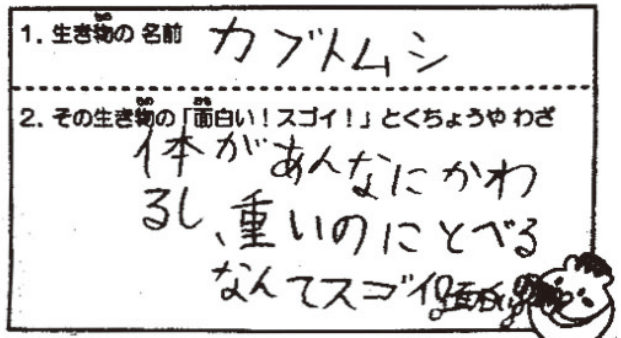 1. 生き物の 名前 カブトムシ
2. その生き物の「面白い!スゴイ!」とくちょうや わざ
体があんなにかわ
るし、重いのにとべる
なんてスゴイ!面白い!